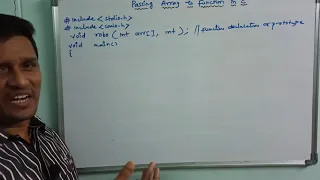 Passing Array to Function in C
# include <stdio.h>
# include <conio.h>
void raba ( int arr[], int ); // function declaration or prototype
void main()
{